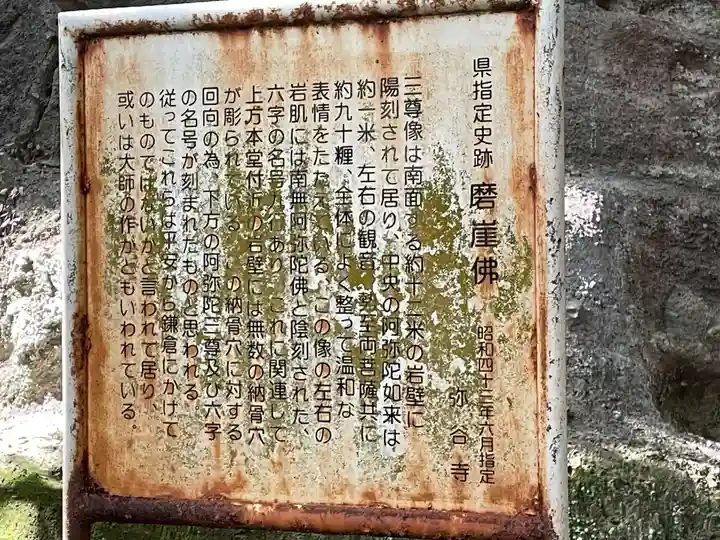 県指定史跡 磨崖佛
昭和四十三年六月指定
弥谷寺
三尊像は南面する約十二米の岩壁に
陽刻されて居り、中央の阿弥陀如来は
約一米、左右の観音、勢至両菩薩共に
約九十糎、全体によく整って温和な
表情をたたえている。この像の左右の
岩肌には南無阿弥陀佛と陰刻された、
六字の名号があり、これに関連して
上方本堂付近の岩壁には無数の納骨穴
が彫られている。の納骨穴に対する
回向の為、下方の阿弥陀三尊及び六字
の名号が刻まれたものと思われる。
従ってこれらは平安から鎌倉にかけて
のものではないかと言われて居り、
或いは大師の作かともいわれている。